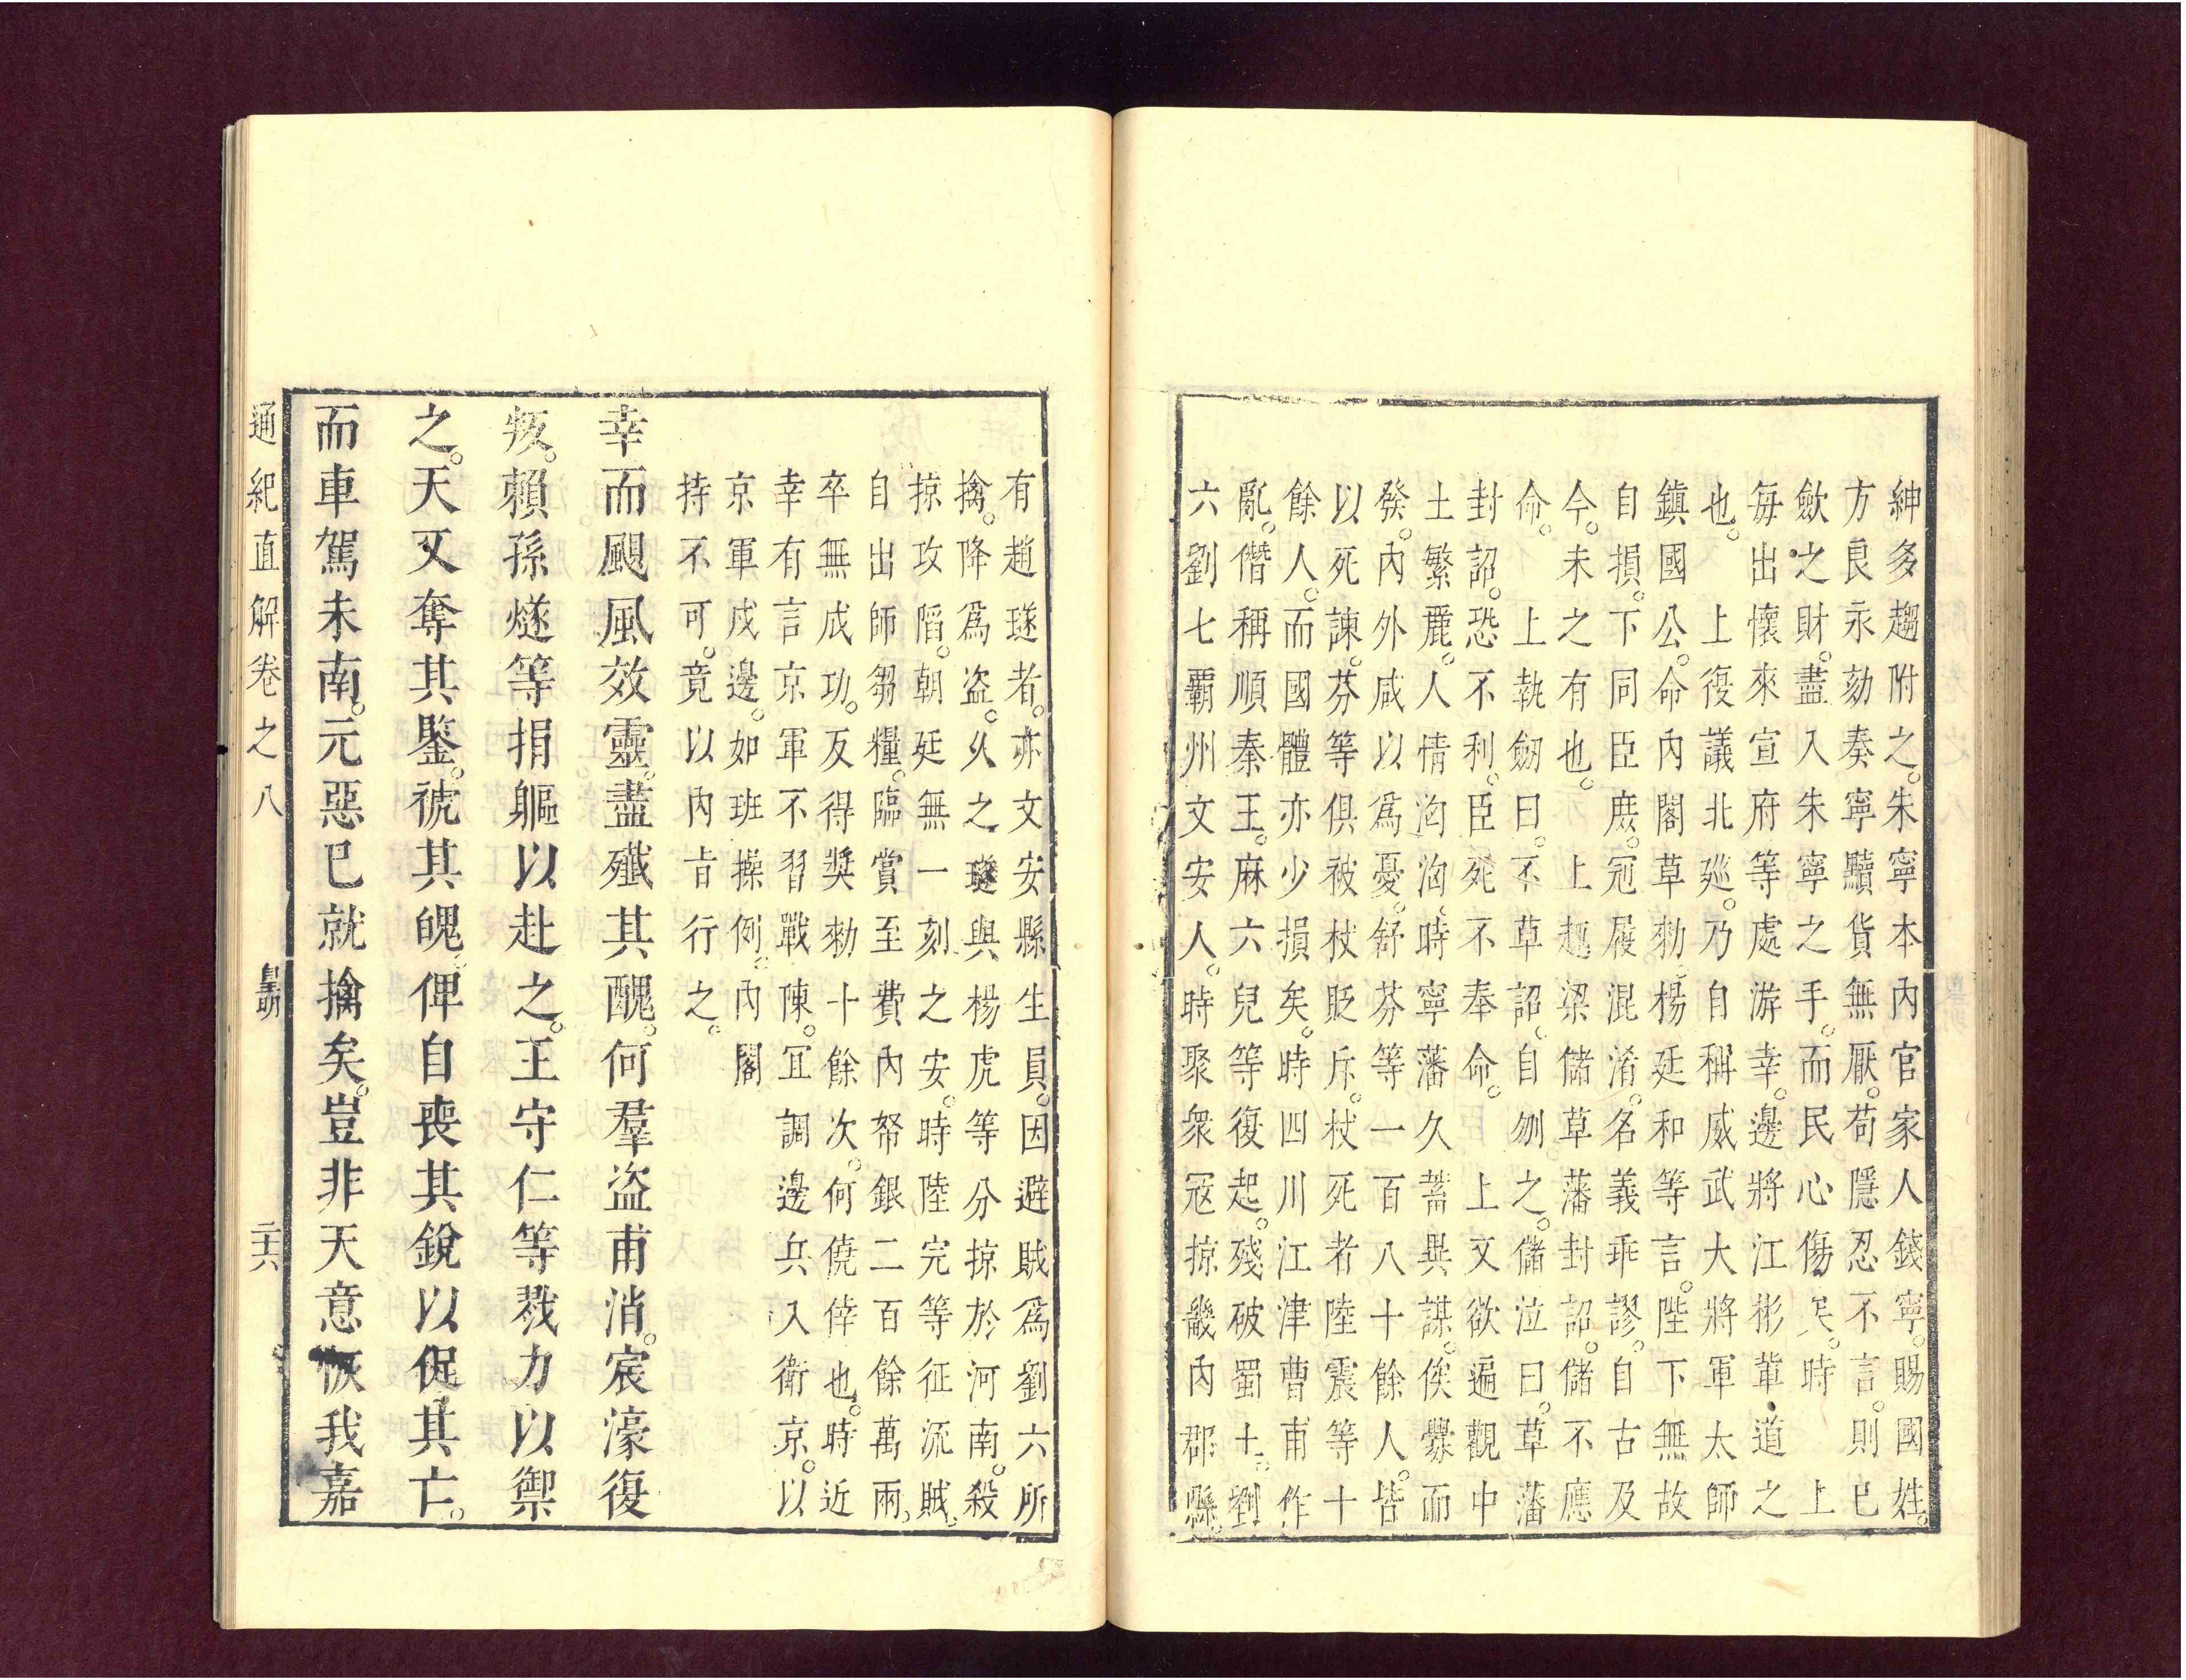 紳多趨附之。朱寧本內官家人錢寧。賜國姓。
方良永劾奏寧驕貨無厭。苟隱忍不言。則已
歛之財。盡入朱寧之手。而民心傷矣。時　上
毎出懷來宣府等處游幸。邊將江彬輩道之
也。　上復議北廵。乃自稱威武大將軍太師
鎮國公。命內閣草勑。楊廷和等言。陛下無故
自損。下同臣庻。冠履混淆。名義乖謬。自古及
今。未之有也。　上趣梁儲草藩封詔。儲不應
命。　上執劒曰。不草詔。自刎之。儲泣曰。草藩
封詔。恐不利。臣死不奉命。　上又欲遍觀中
土繁麗。人情洶洶。時寧藩久蓄異謀。俟釁而
發。內外咸以爲憂。舒芬等一百八十餘人。皆
以死諫。芬等俱被杖貶斥。杖死者陸震等十
餘人。而國體亦少損矣。時四川江津曹甫作
亂。僭稱順秦王。麻六兒等復起。殘破蜀土。劉
六劉七霸州文安人。時聚衆冦掠畿內郡縣。
有趙璲者。亦文安縣生員。因避賊爲劉六所
擒。降爲盗。久之璲與楊虎等分掠於河南。殺
掠攻陷。朝廷無一刻之安。時陸完等征流賊。
自出師芻糧。臨賞至費內帑銀二百餘萬兩。
卒無成功。反得奬勑十餘次。何僥倖也。時近
幸有言京軍不習戰陳。冝調邊兵入衛京。以
京軍戍邊。如班操例。內閣
持不可。竟以內㫖行之。
幸而颶風效靈。盡殲其醜。何羣盗甫消。宸濠復
叛。賴孫燧等捐軀以赴之。王守仁等戮力以禦
之。天又奪其鑒。禠其魄。俾自喪其銳以促其亡。
而車駕未南。元惡已就擒矣。豈非天意恢我嘉
通紀直解卷之八　皇明　二十六